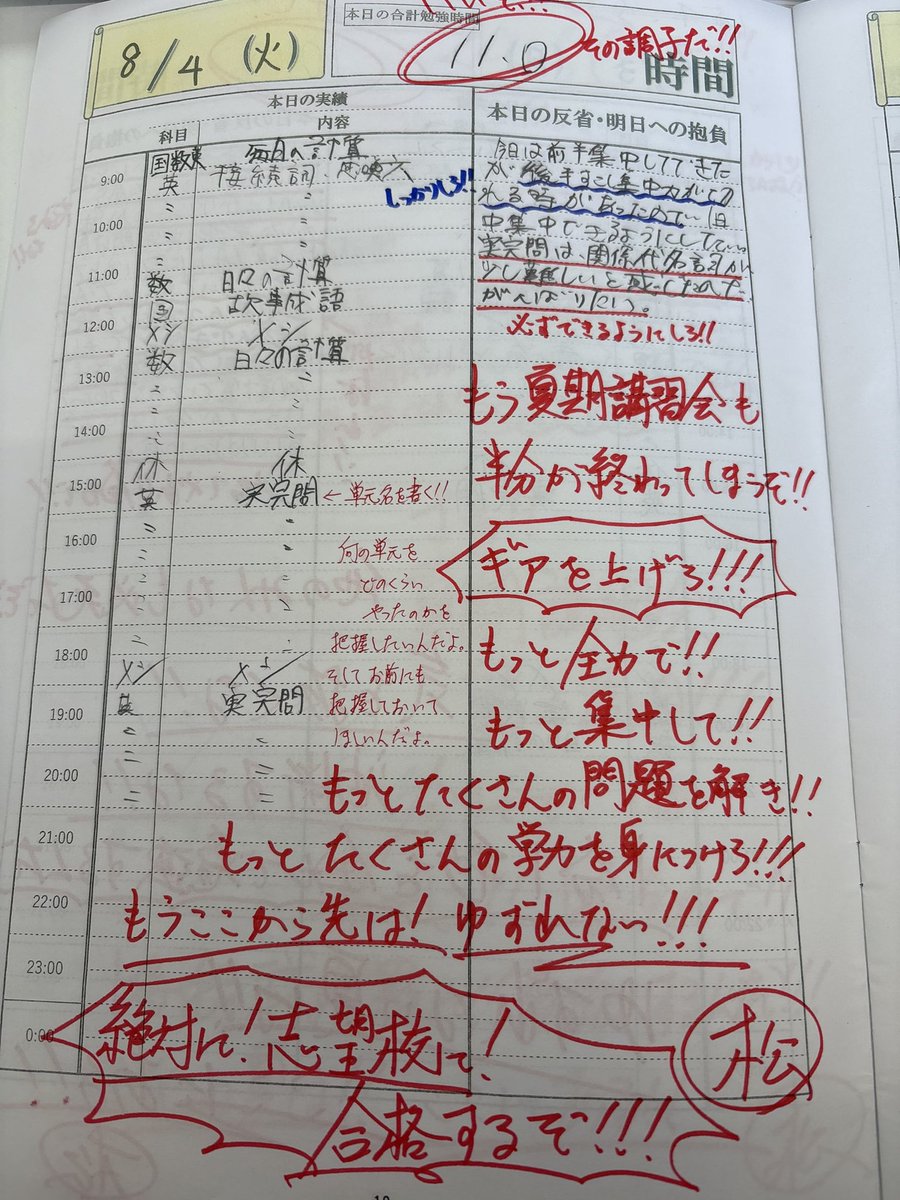 8/4 (火)
本日の合計勉強時間
11.0
時間
その調子だ!!
本日の実績
科目
内容
本日の反省・明日への抱負
9:00
10:00
11:00
12:00
13:00
14:00
15:00
16:00
17:00
18:00
19:00
20:00
21:00
22:00
23:00
0:00
国数英 毎日の計算
英 接続詞、感嘆文
〃 〃
〃
〃
〃
数 日々の計算
国 故事成語
メシ メシ
数 日々の計算
〃 〃
〃 〃
〃 〃
休 休
英 実完問
〃 〃
〃 〃
〃 〃
〃 〃
メシ メシ
英 実完問
〃 〃
〃 〃
〃 〃
今日は前半集中してできた
が後半すこし集中力がとぎ
れる時があったので1日
中集中できるようにしたい。
実完問は、関係代名詞が
少し難しいと感じたので
がんばりたい。
しっかりしろ!!
必ずできるようにしろ!!
← 単元名を書く!!
何の単元を
どのくらい
やったのかを
把握したいんだよ。
そしてお前にも
把握しておいて
ほしいんだよ。
もう夏期講習会も
半分が終わってしまうぞ!!
ギアを上げろ!!!
もっと全力で!!
もっと集中して!!
もっとたくさんの問題を解き!!
もっとたくさんの学力を身につけろ!!!
もうここから先は! ゆずれない!!!
絶対に!志望校に!
合格するぞ!!!
松